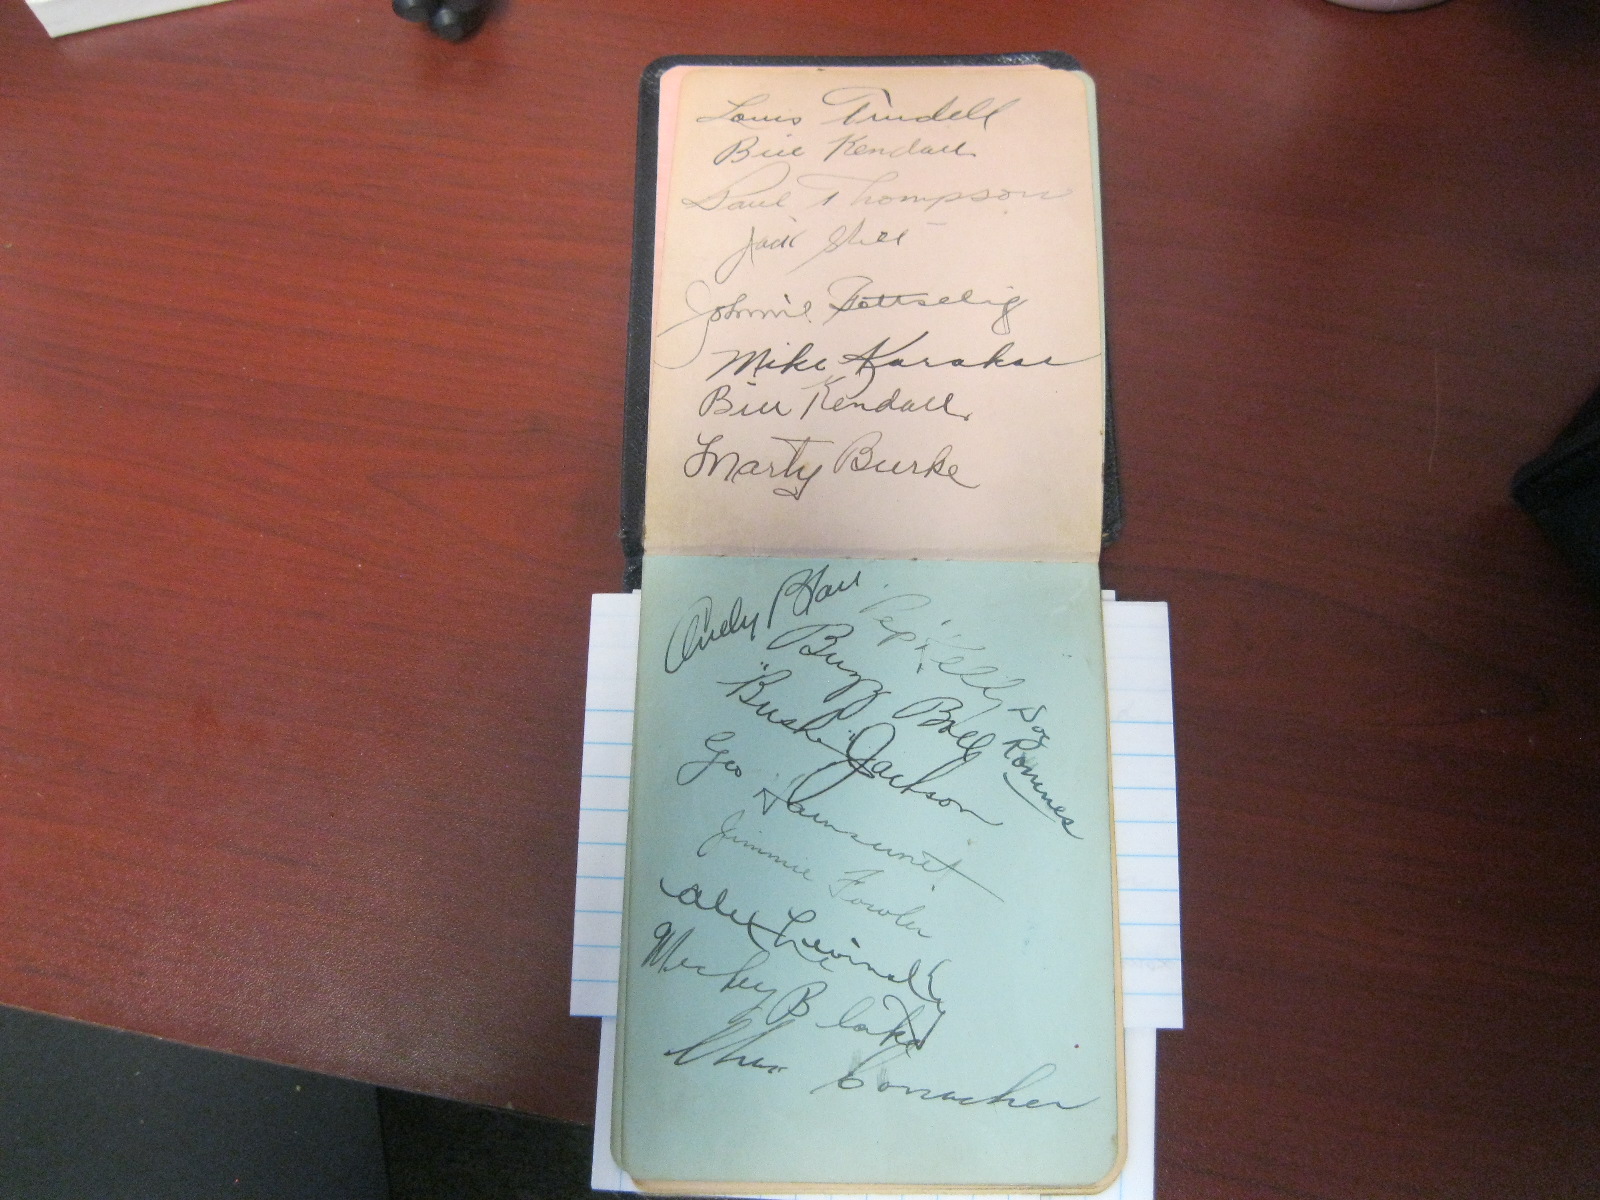 Louis Trudell
Bill Kendall
Paul Thompson
Jack Shill
Johnnie Gottselig
Mike Karakas
Bill Kendall.
Marty Burke
Andy Blair
"Pep" Kelly
Doc Romnes
Buzz Boll
"Busher" Jackson
Geo Hainsworth
Jimmie Fowler
Alex Levinsky
Mickey Blake
Chas Conacher